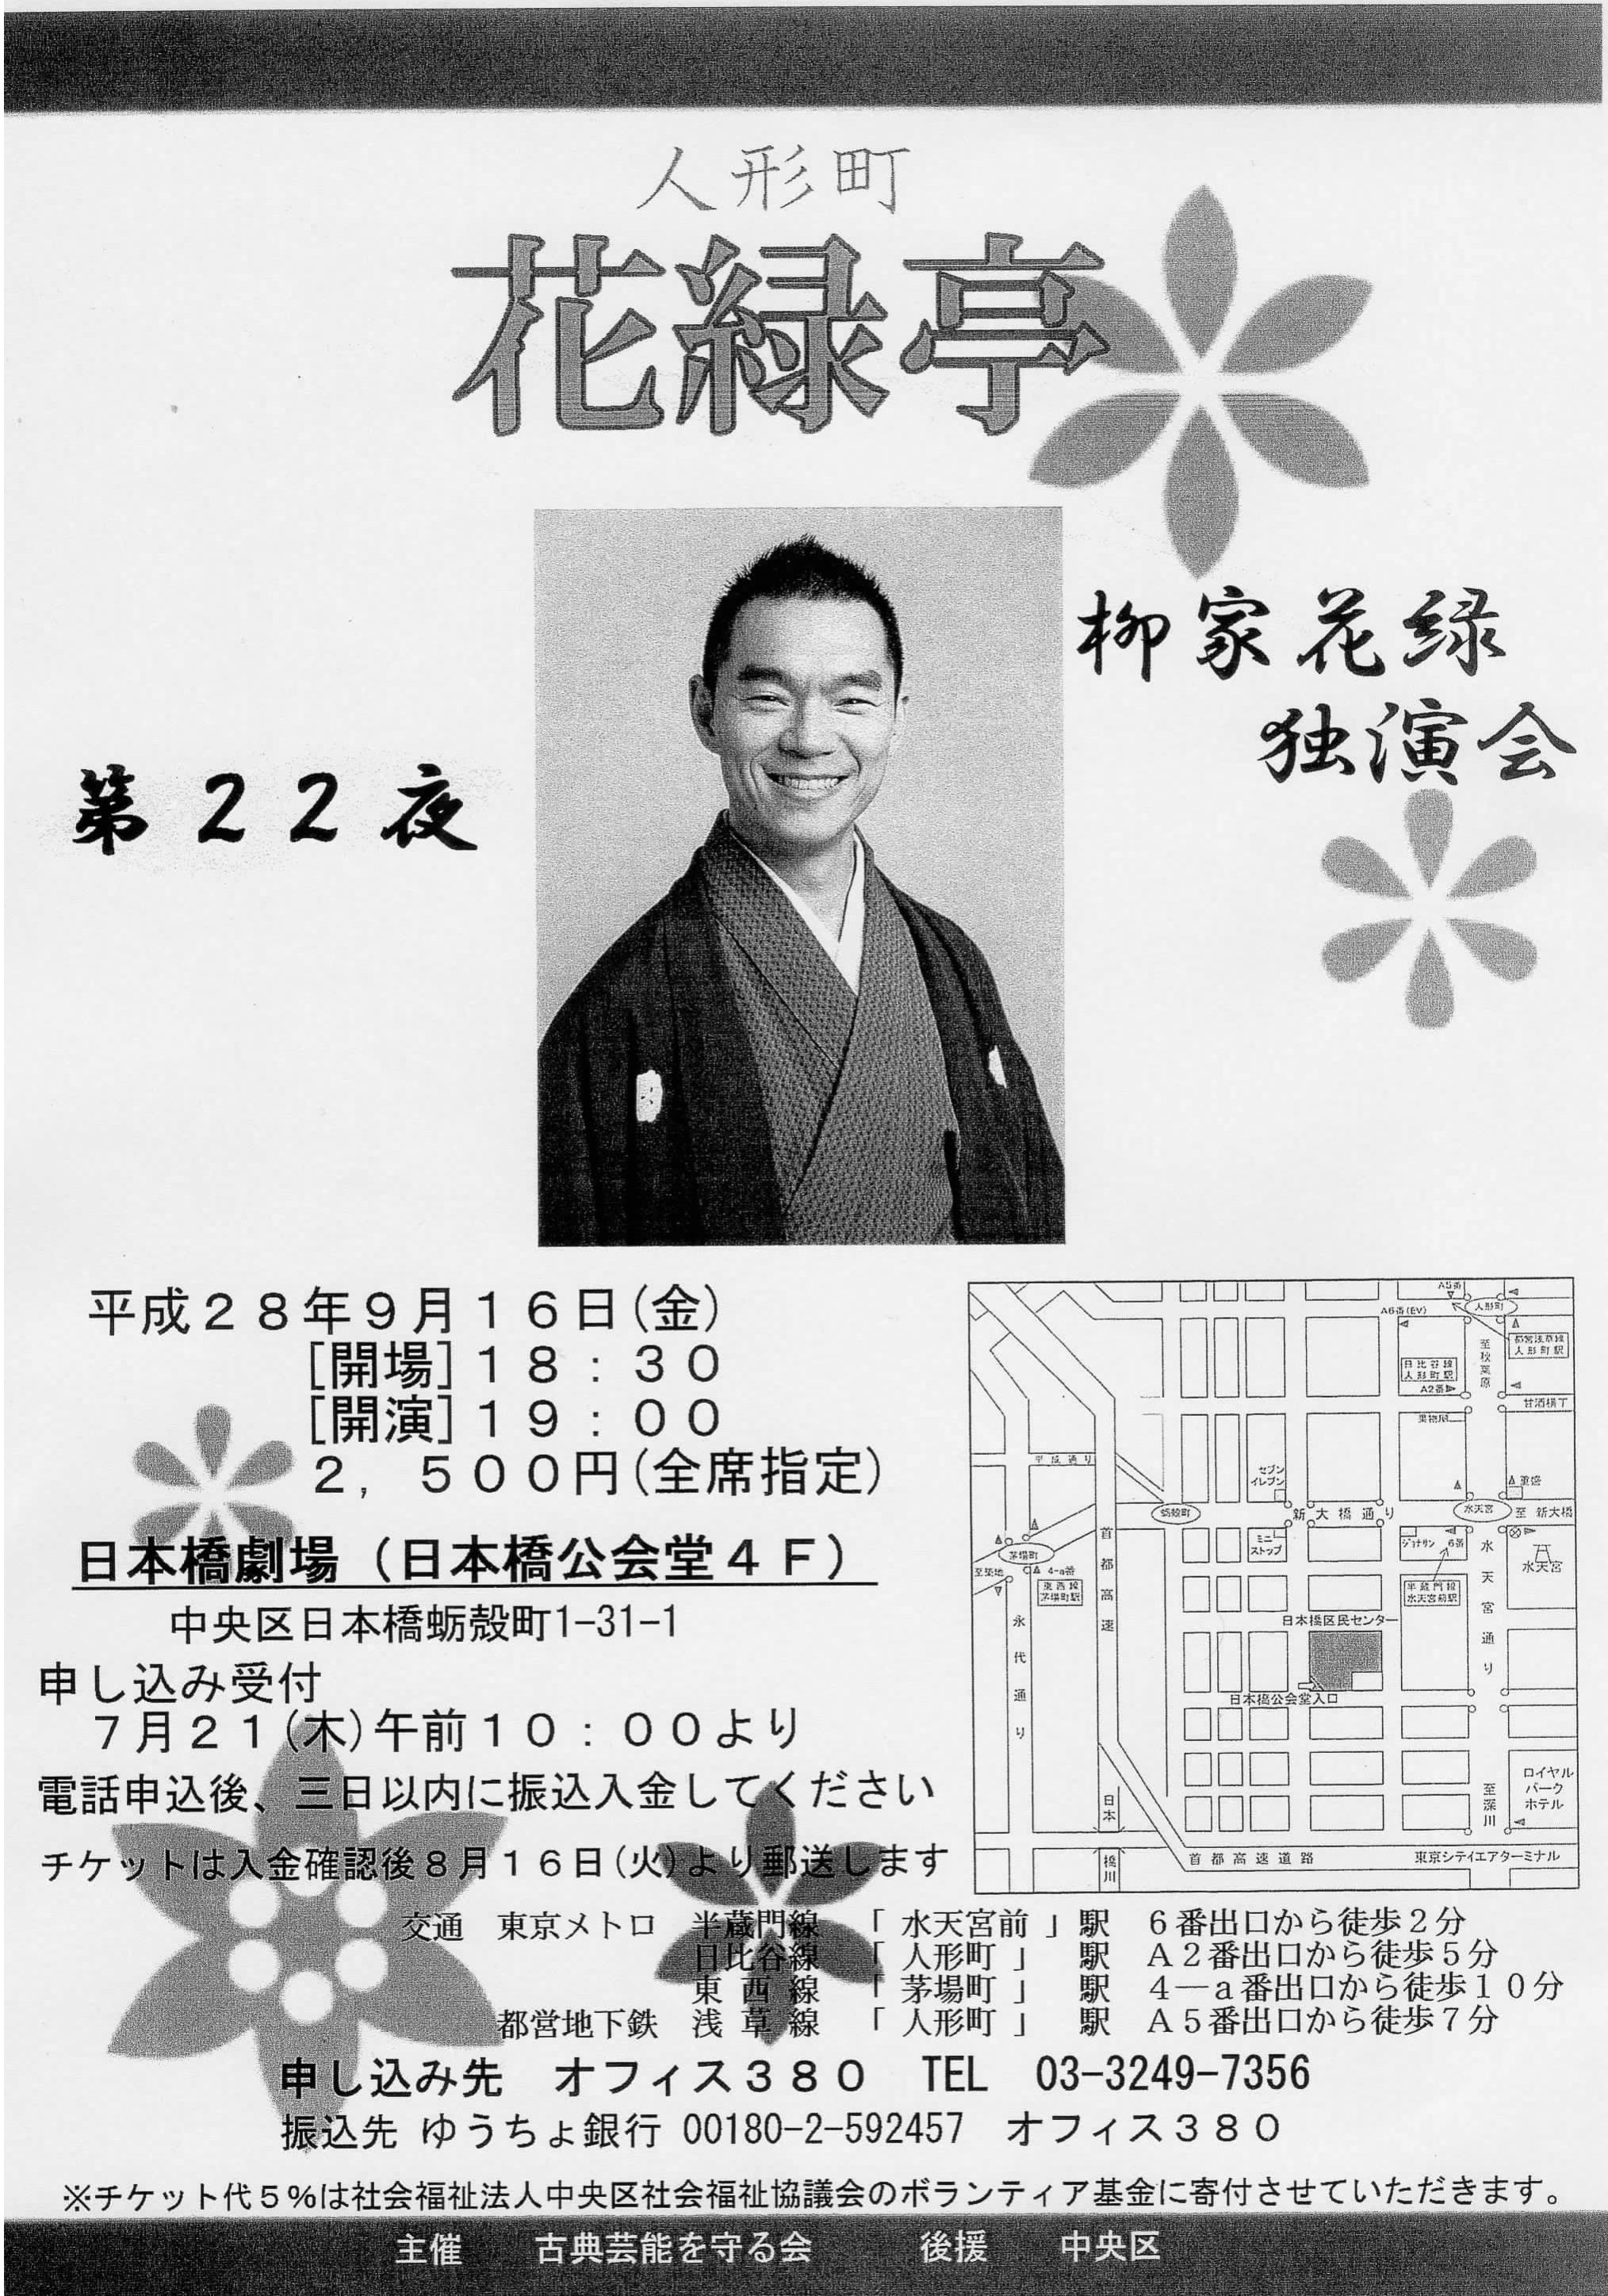 人形町
花緑亭
柳家花緑
独演会
第２２夜
平成２８年９月１６日(金)
[開場]１８：３０
[開演]１９：００
２，５００円(全席指定)
日本橋劇場（日本橋公会堂４Ｆ）
中央区日本橋蛎殻町1-31-1
申し込み受付
７月２１(木)午前１０：００より
電話申込後、三日以内に振込入金してください
チケットは入金確認後８月１６日(火)より郵送します
A5番
A6番(EV)
人形町
都営浅草線
人形町駅
至秋葉原
日比谷線
人形町駅
A2番
甘酒横丁
果物屋
平成通り
セブン
イレブン
重盛
蛎殻町
新大橋通り
水天宮
至 新大橋
首都高速
茅場町
至築地
4-a番
東西線
茅場町駅
ミニ
ストップ
ジョナサン
6番
水天宮
半蔵門線
水天宮前駅
水天宮通り
永代通り
日本橋区民センター
日本橋公会堂入口
至深川
ロイヤル
パーク
ホテル
日本
橋川
首都高速道路
東京シティエアターミナル
交通　東京メトロ　半蔵門線　「 水天宮前 」駅　６番出口から徒歩２分
日比谷線　「 人形町 」　駅　Ａ２番出口から徒歩５分
東 西 線　「 茅場町 」　駅　４―ａ番出口から徒歩１０分
都営地下鉄　浅 草 線　「 人形町 」　駅　Ａ５番出口から徒歩７分
申し込み先　オフィス３８０　TEL　03-3249-7356
振込先 ゆうちょ銀行 00180-2-592457　オフィス３８０
※チケット代５%は社会福祉法人中央区社会福祉協議会のボランティア基金に寄付させていただきます。
主催　古典芸能を守る会　後援　中央区